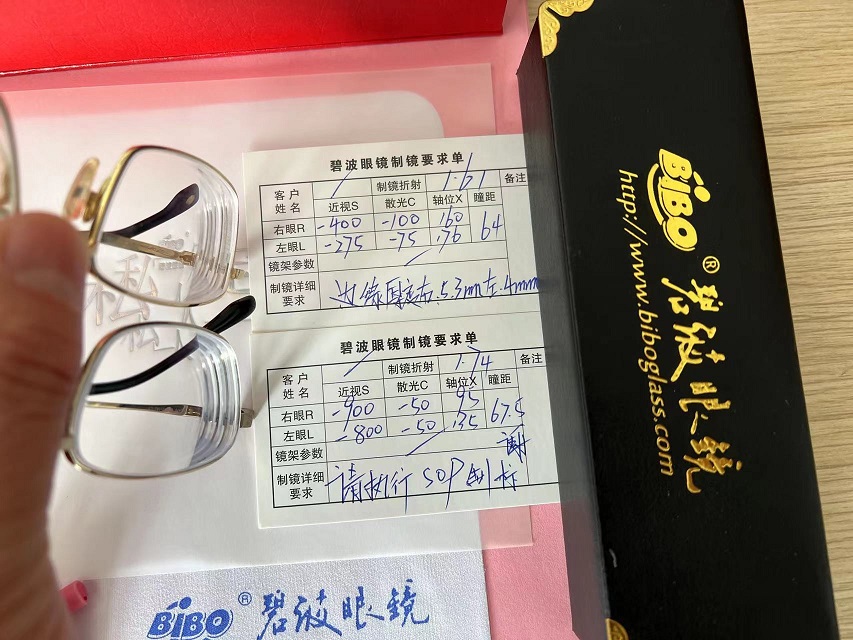 碧波眼镜制镜要求单
客户姓名 制镜折射 1.61 备注
近视S 散光C 轴位X 瞳距
右眼R -400 -100 160 64
左眼L -275 -75 176
镜架参数
制镜详细要求 边缘厚度右.5.3mm左.4mm
碧波眼镜制镜要求单
客户姓名 制镜折射 1.74 备注
近视S 散光C 轴位X 瞳距
右眼R -900 -50 95 67.5
左眼L -800 -50 135
镜架参数
制镜详细要求 请执行SOP制标 谢
BiBO® 碧波眼镜
http://www.biboglass.com
BiBO® 碧波眼镜